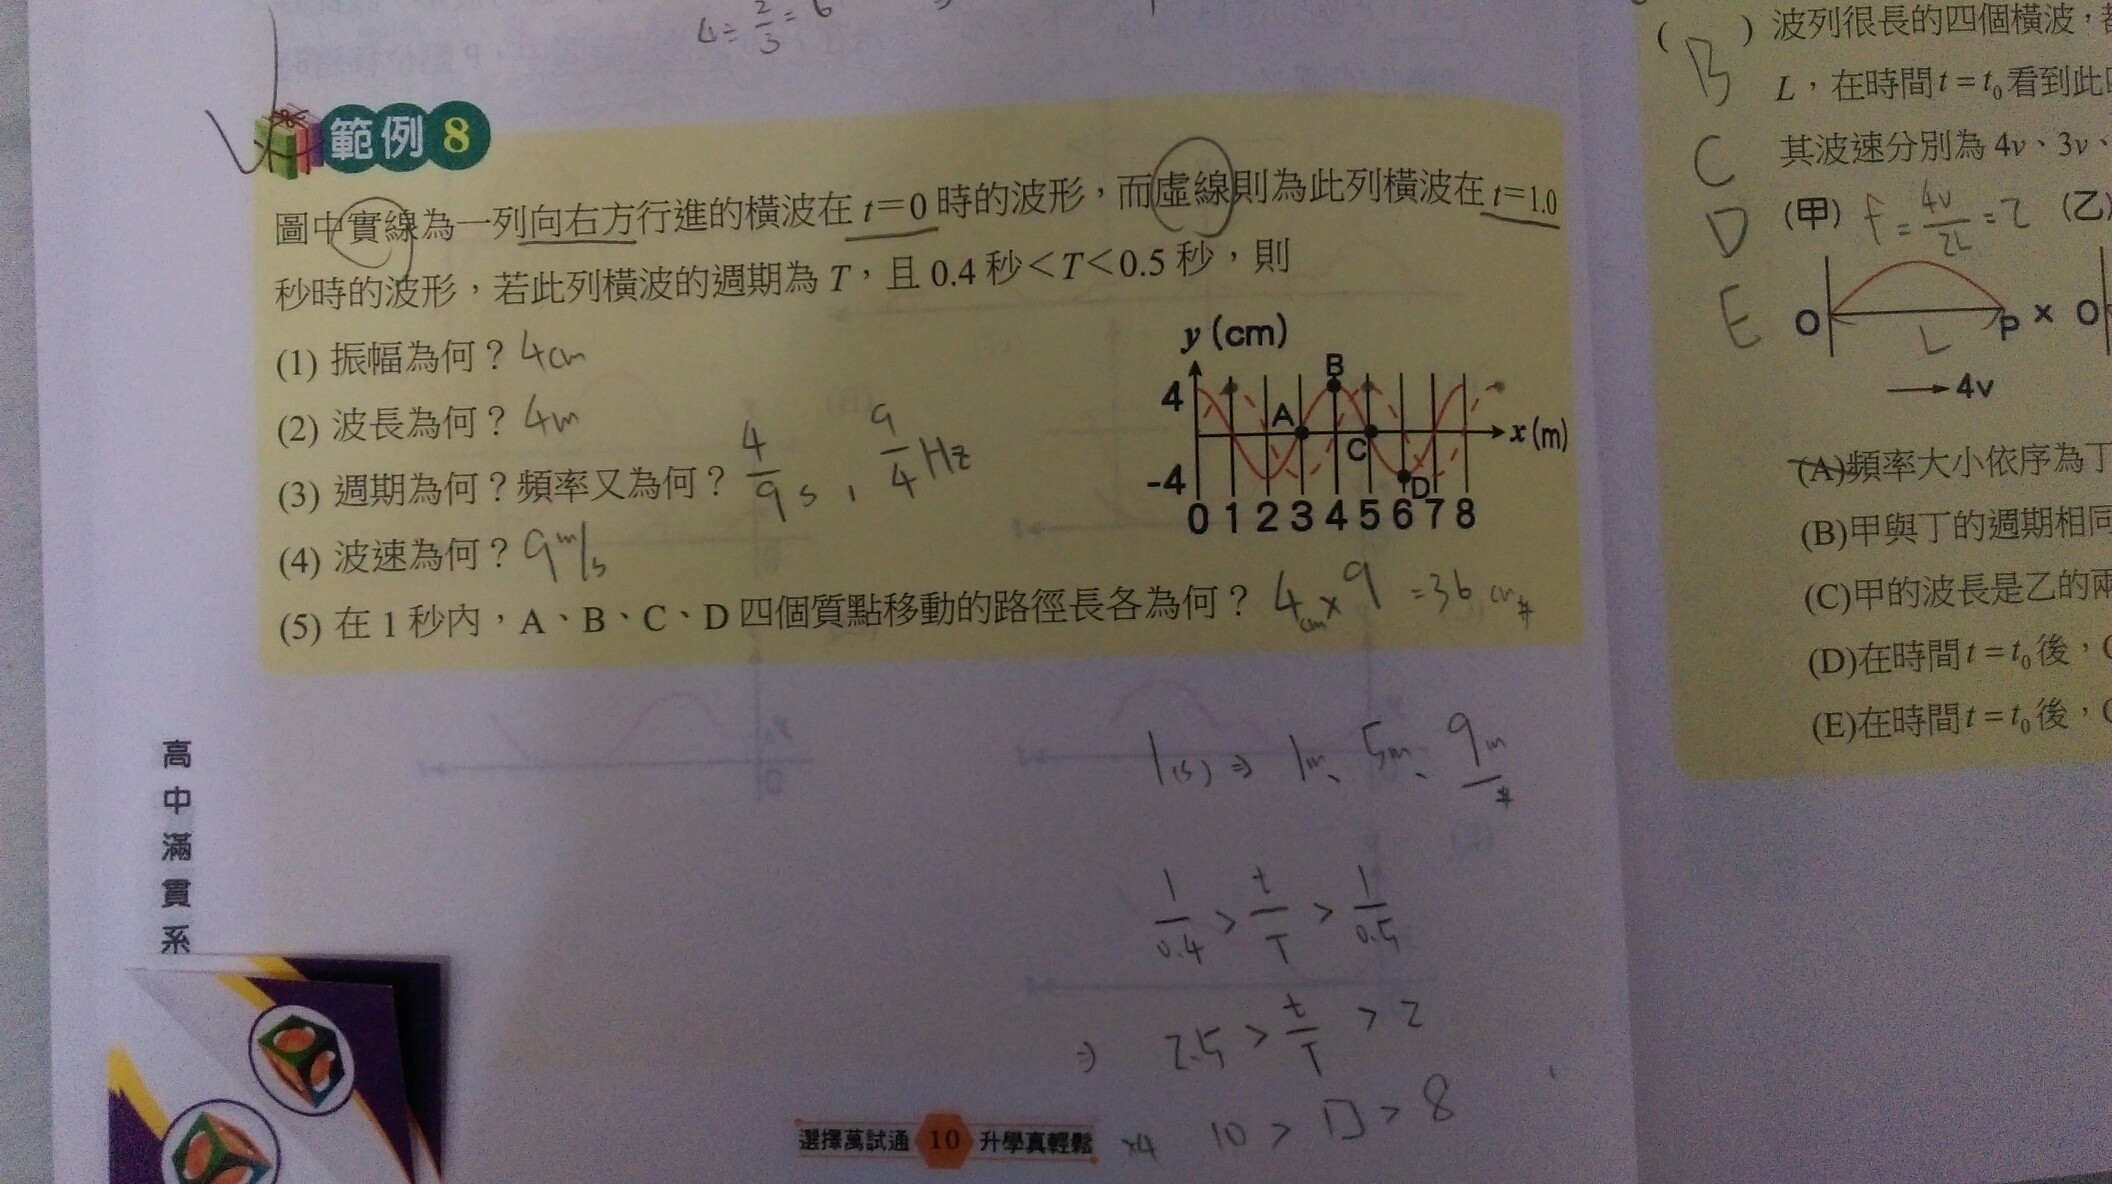 4 ÷ 2/3 = 6
範例 8
圖中實線為一列向右方行進的橫波在 t=0 時的波形，而虛線則為此列橫波在 t=1.0
秒時的波形，若此列橫波的週期為 T，且 0.4 秒＜T＜0.5 秒，則
(1) 振幅為何？ 4cm
(2) 波長為何？ 4m
(3) 週期為何？頻率又為何？ 4/9 s , 9/4 Hz
(4) 波速為何？ 9 m/s
(5) 在 1 秒內，A、B、C、D 四個質點移動的路徑長各為何？ 4cm × 9 = 36 cm #
y (cm)
4
-4
A
B
C
D
x (m)
0 1 2 3 4 5 6 7 8
1(s) ⇒ 1m、5m、9m #
1/0.4 > t/T > 1/0.5
⇒ 2.5 > t/T > 2
×4 10 > □ > 8
高中滿貫系
選擇萬試通 10 升學真輕鬆
( ) 波列很長的四個橫波，
B
C
D
E
L，在時間 t = t₀ 看到此
其波速分別為 4v、3v、
(甲) f = 4v/2L = 2 (乙)
O
L
P × O
4v
(A)頻率大小依序為丁
(B)甲與丁的週期相同
(C)甲的波長是乙的兩
(D)在時間 t = t₀ 後，
(E)在時間 t = t₀ 後，